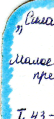 "Сила
Малое
пре
Т. 43-